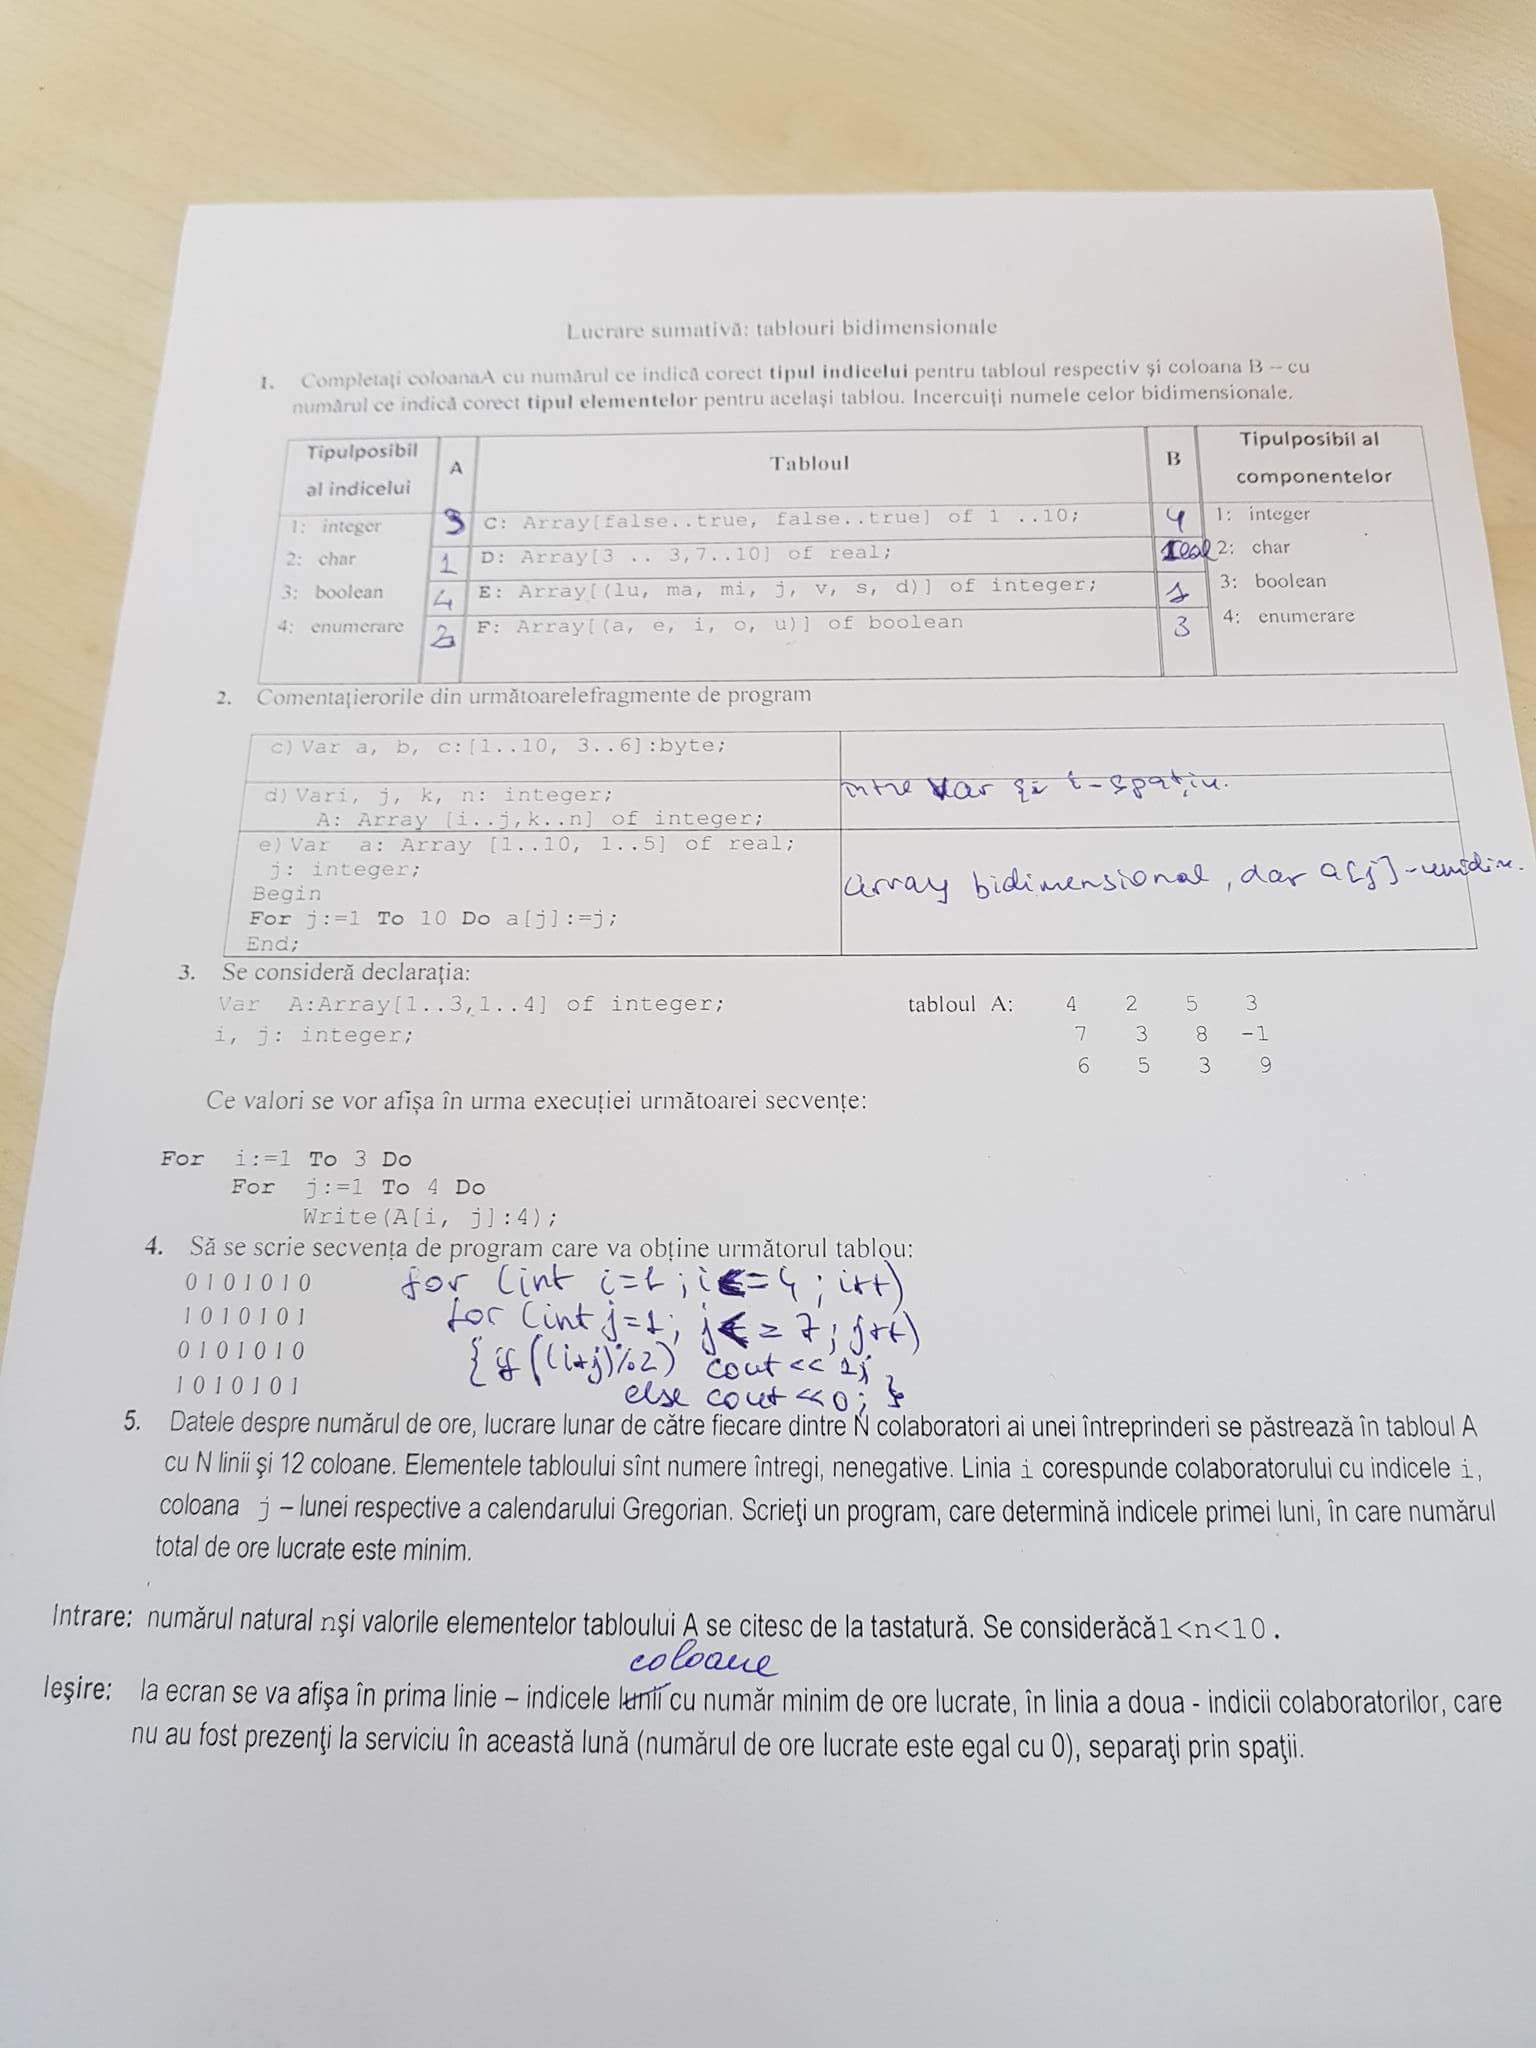 Lucrare sumativă: tablouri bidimensionale
1. Completaţi coloanaA cu numărul ce indică corect tipul indicelui pentru tabloul respectiv şi coloana B – cu
numărul ce indică corect tipul elementelor pentru acelaşi tablou. Incercuiţi numele celor bidimensionale.
Tipulposibil al indicelui
A
Tabloul
B
Tipulposibil al componentelor
1: integer
3
C: Array[false..true, false..true] of 1 ..10;
4
1: integer
2: char
1
D: Array[3 .. 3,7..10] of real;
real
2: char
3: boolean
4
E: Array[(lu, ma, mi, j, v, s, d)] of integer;
1
3: boolean
4: enumerare
2
F: Array[(a, e, i, o, u)] of boolean
3
4: enumerare
2. Comentaţierorile din următoarelefragmente de program
c) Var a, b, c:[1..10, 3..6]:byte;
d) Vari, j, k, n: integer;
A: Array [i..j,k..n] of integer;
între Var şi i-spaţiu.
e) Var a: Array [1..10, 1..5] of real;
j: integer;
Begin
For j:=1 To 10 Do a[j]:=j;
End;
array bidimensional, dar a[j]-unidim.
3. Se consideră declaraţia:
Var A:Array[1..3,1..4] of integer;
i, j: integer;
tabloul A: 4 2 5 3
7 3 8 -1
6 5 3 9
Ce valori se vor afişa în urma execuţiei următoarei secvenţe:
For i:=1 To 3 Do
For j:=1 To 4 Do
Write(A[i, j]:4);
4. Să se scrie secvenţa de program care va obţine următorul tablou:
0 1 0 1 0 1 0
1 0 1 0 1 0 1
0 1 0 1 0 1 0
1 0 1 0 1 0 1
for (int i=1; i<=4; i++)
for (int j=1; j<=7; j++)
{ if ((i+j)%2) cout << 1;
else cout << 0; }
5. Datele despre numărul de ore, lucrare lunar de către fiecare dintre N colaboratori ai unei întreprinderi se păstrează în tabloul A
cu N linii şi 12 coloane. Elementele tabloului sînt numere întregi, nenegative. Linia i corespunde colaboratorului cu indicele i,
coloana j – lunei respective a calendarului Gregorian. Scrieţi un program, care determină indicele primei luni, în care numărul
total de ore lucrate este minim.
Intrare: numărul natural nşi valorile elementelor tabloului A se citesc de la tastatură. Se considerăcă1<n<10.
coloane
Ieşire: la ecran se va afişa în prima linie – indicele lunii cu număr minim de ore lucrate, în linia a doua - indicii colaboratorilor, care
nu au fost prezenţi la serviciu în această lună (numărul de ore lucrate este egal cu 0), separaţi prin spaţii.